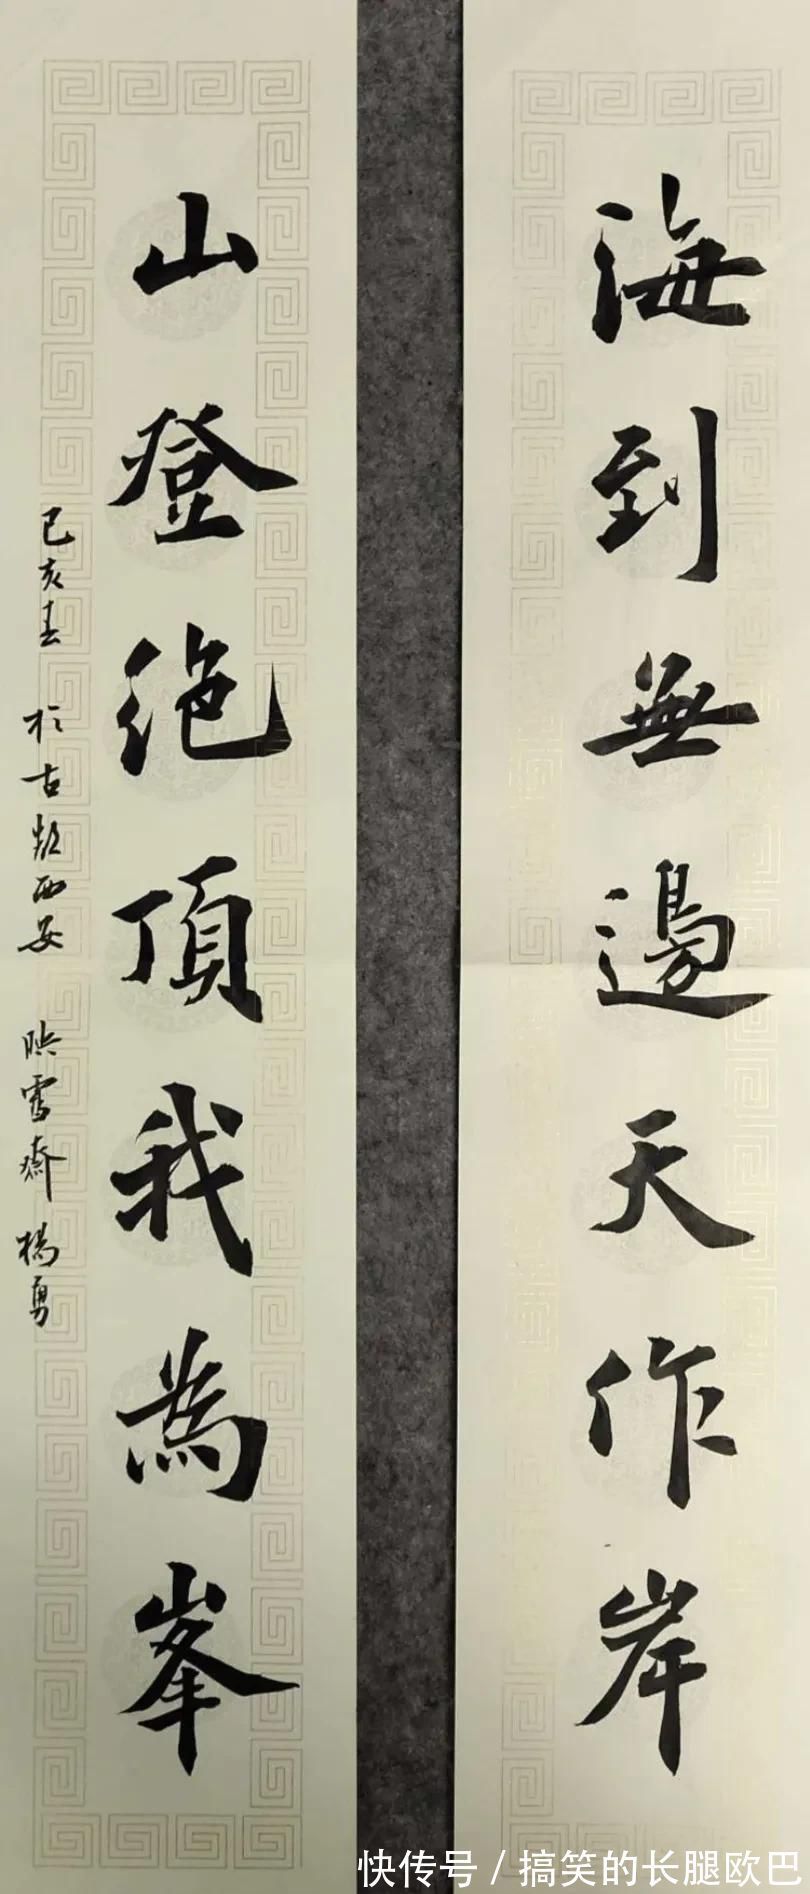 海到無邊天作岸
山登絶頂我為峯
己亥春 於古都西安 映雪齋 楊勇
快传号 / 搞笑的长腿欧巴